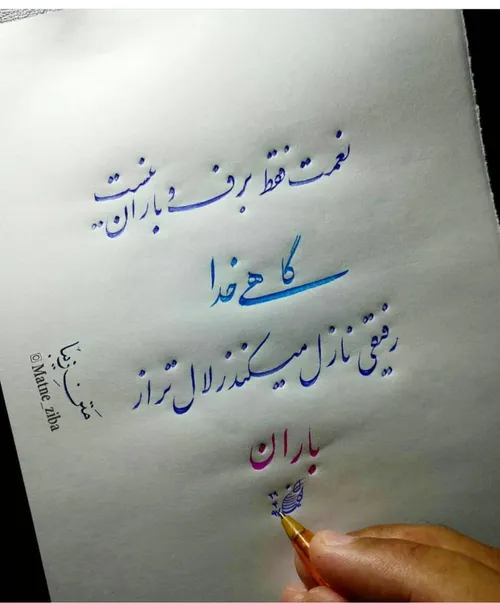 نعمت فقط برف و باران نیست..
گاهے خدا
رفیقی نازل میکند زلال تر از
باران
مَتنِ زیبَا
© Matne_ziba